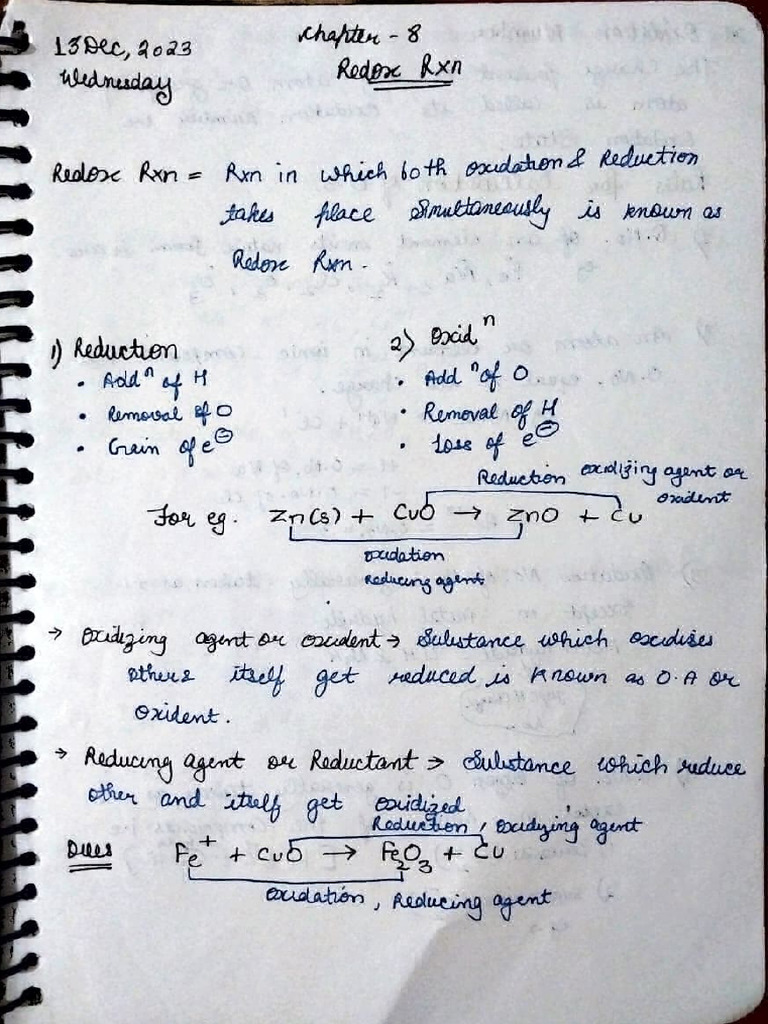 13 Dec, 2023
Wednesday
Chapter - 8
Redox Rxn
Redox Rxn = Rxn in which both oxidation & Reduction
takes place simultaneously is known as
Redox Rxn.
1) Reduction
• Addⁿ of H
• Removal of O
• Gain of e⊖
2) Oxidⁿ
• Addⁿ of O
• Removal of H
• Loss of e⊖
Reduction oxidizing agent or
oxident
For eg. Zn(s) + CuO → ZnO + Cu
oxidation
reducing agent
→ Oxidizing agent or oxident → Substance which oxidises
others itself get reduced is known as O.A or
Oxident.
→ Reducing agent or Reductant → Substance which reduce
other and itself get oxidized
Reduction, oxidizing agent
Fe⁺ + CuO → Fe₂O₃ + Cu
oxidation, Reducing agent